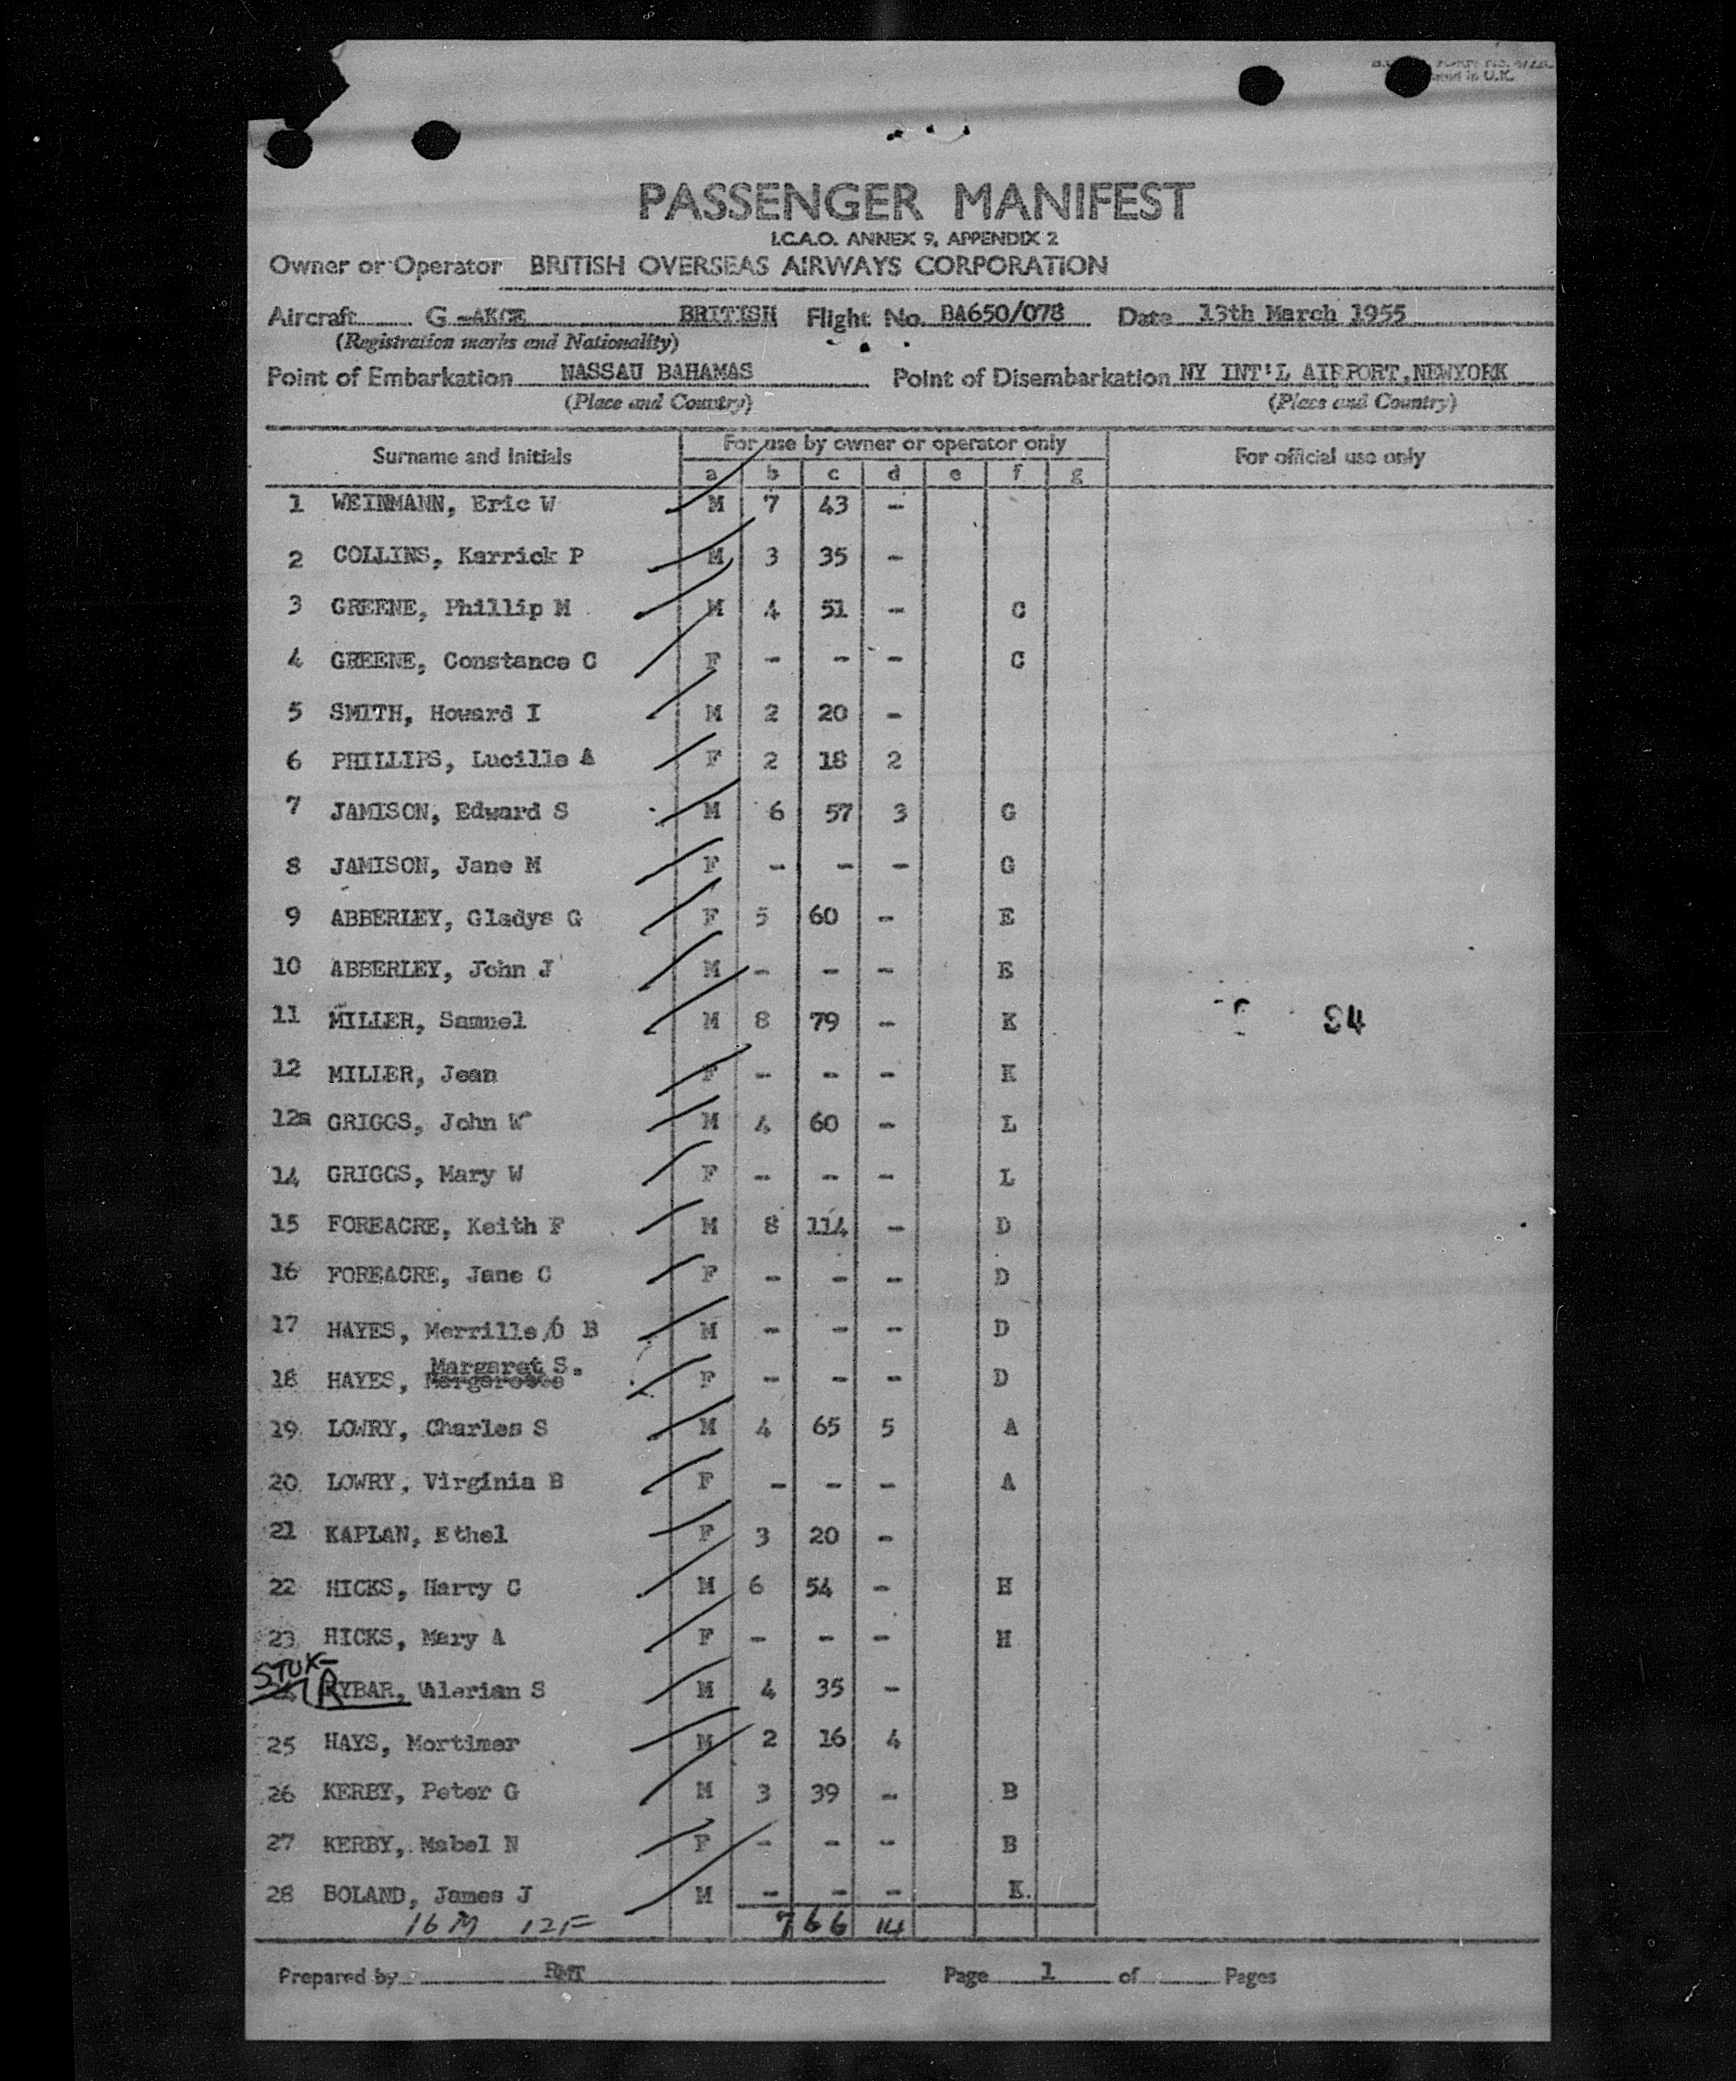 PASSENGER MANIFEST
I.C.A.O. ANNEX 9, APPENDIX 2
Owner or Operator BRITISH OVERSEAS AIRWAYS CORPORATION
Aircraft G -AKCE BRITISH Flight No. BA650/078 Date 13th March 1955
(Registration marks and Nationality)
Point of Embarkation NASSAU BAHAMAS Point of Disembarkation NY INT'L AIRPORT,NEWYORK
(Place and Country) (Place and Country)
Surname and Initials For use by owner or operator only For official use only
a b c d e f g
1 WEINMANN, Eric W M 7 43 -
2 COLLINS, Karrick P M 3 35 -
3 GREENE, Phillip M M 4 51 - C
4 GREENE, Constance C F - - - C
5 SMITH, Howard I M 2 20 -
6 PHILLIPS, Lucille A F 2 18 2
7 JAMISON, Edward S M 6 57 3 G
8 JAMISON, Jane M F - - - G
9 ABBERLEY, Gladys G F 5 60 - E
10 ABBERLEY, John J M - - - E
11 MILLER, Samuel M 8 79 - K 84
12 MILLER, Jean F - - - K
12a GRIGGS, John W M 4 60 - L
14 GRIGGS, Mary W F - - - L
15 FOREACRE, Keith F M 8 114 - D
16 FOREACRE, Jane C F - - - D
17 HAYES, Merrille/D B M - - - D
Margaret S.
18 HAYES, F - - - D
19 LOWRY, Charles S M 4 65 5 A
20 LOWRY, Virginia B F - - - A
21 KAPLAN, Ethel F 3 20 -
22 HICKS, Harry C M 6 54 - H
23 HICKS, Mary A F - - - H
STUK-
RYBAR, Valerian S M 4 35 -
25 HAYS, Mortimer M 2 16 4
26 KERBY, Peter G M 3 39 - B
27 KERBY, Mabel N F - - - B
28 BOLAND, James J M - - - K.
16 M 12F 766 14
Prepared by RMT Page 1 of Pages